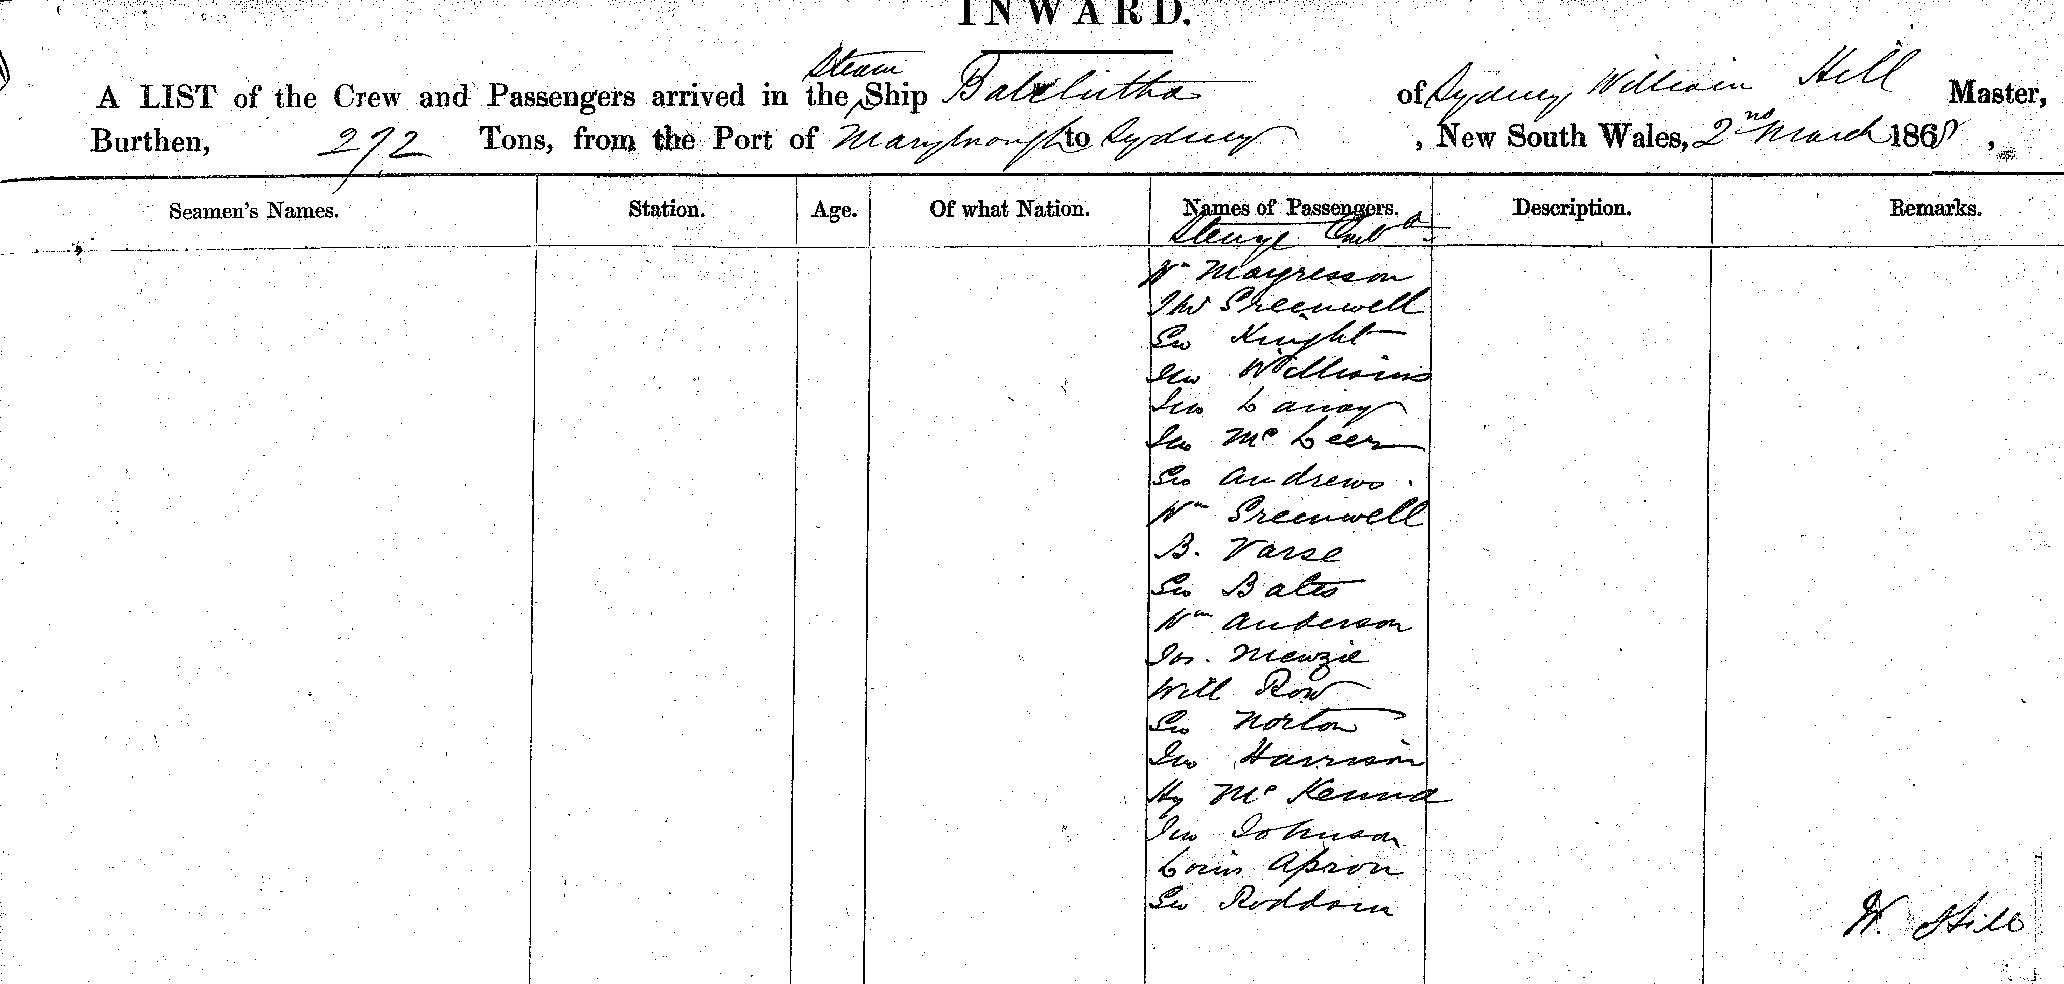 INWARD.
Steam
A LIST of the Crew and Passengers arrived in the Ship Balclutha of Sydney William Hill Master,
Burthen, 272 Tons, from the Port of Maryborough to Sydney , New South Wales, 2nd March 1868 ,
Seamen's Names. Station. Age. Of what Nation. Names of Passengers. Description. Remarks.
Wm Maygresson
Thos Greenwell
Geo Knight
Jno Williams
Jno Lanay
Jno Mc Leer
Geo Andrews
Wm Greenwell
B. Varse
Geo Bates
Wm Anderson
Jos. Menzie
Will Row
Geo Norton
Jno Harrison
Hy Mc Kenna
Jno Johnson
Louis Apron
Geo Roddam
W. Hill